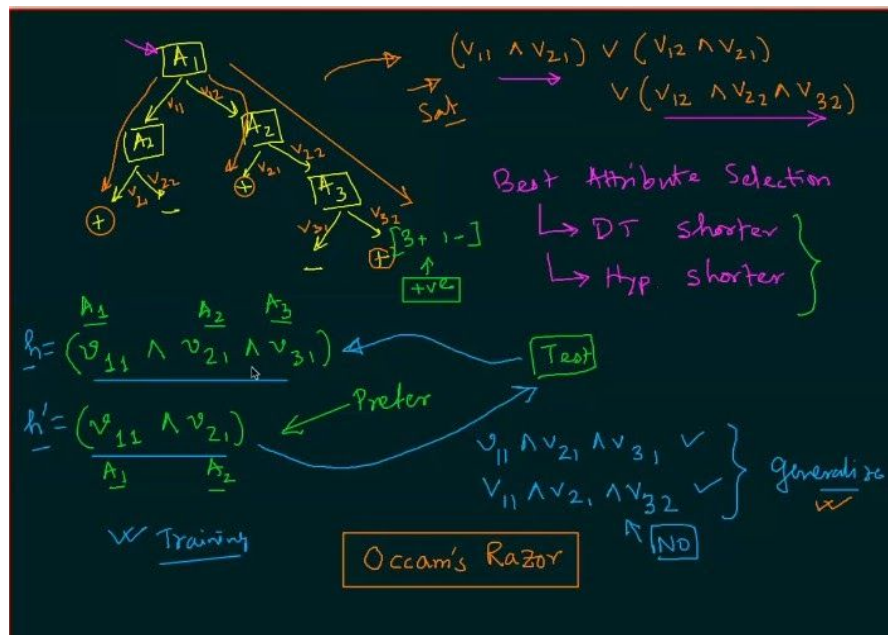 A₁
(v₁₁ ∧ v₂₁) ∨ (v₁₂ ∧ v₂₁)
∨ (v₁₂ ∧ v₂₂ ∧ v₃₂)
Sat
v₁₁ v₁₂
A₂ A₂
v₂₁ v₂₂ v₂₁ v₂₂
+ − + A₃
v₃₁ v₃₂
− + [3+ 1−]
+ve
Best Attribute Selection
→ DT shorter
→ Hyp. shorter
A₁ A₂ A₃
h = (v₁₁ ∧ v₂₁ ∧ v₃₁)
Test
Prefer
h' = (v₁₁ ∧ v₂₁)
A₁ A₂
v₁₁ ∧ v₂₁ ∧ v₃₁ ✓
v₁₁ ∧ v₂₁ ∧ v₃₂ ✓
Generalize
NO
Training
Occam's Razor